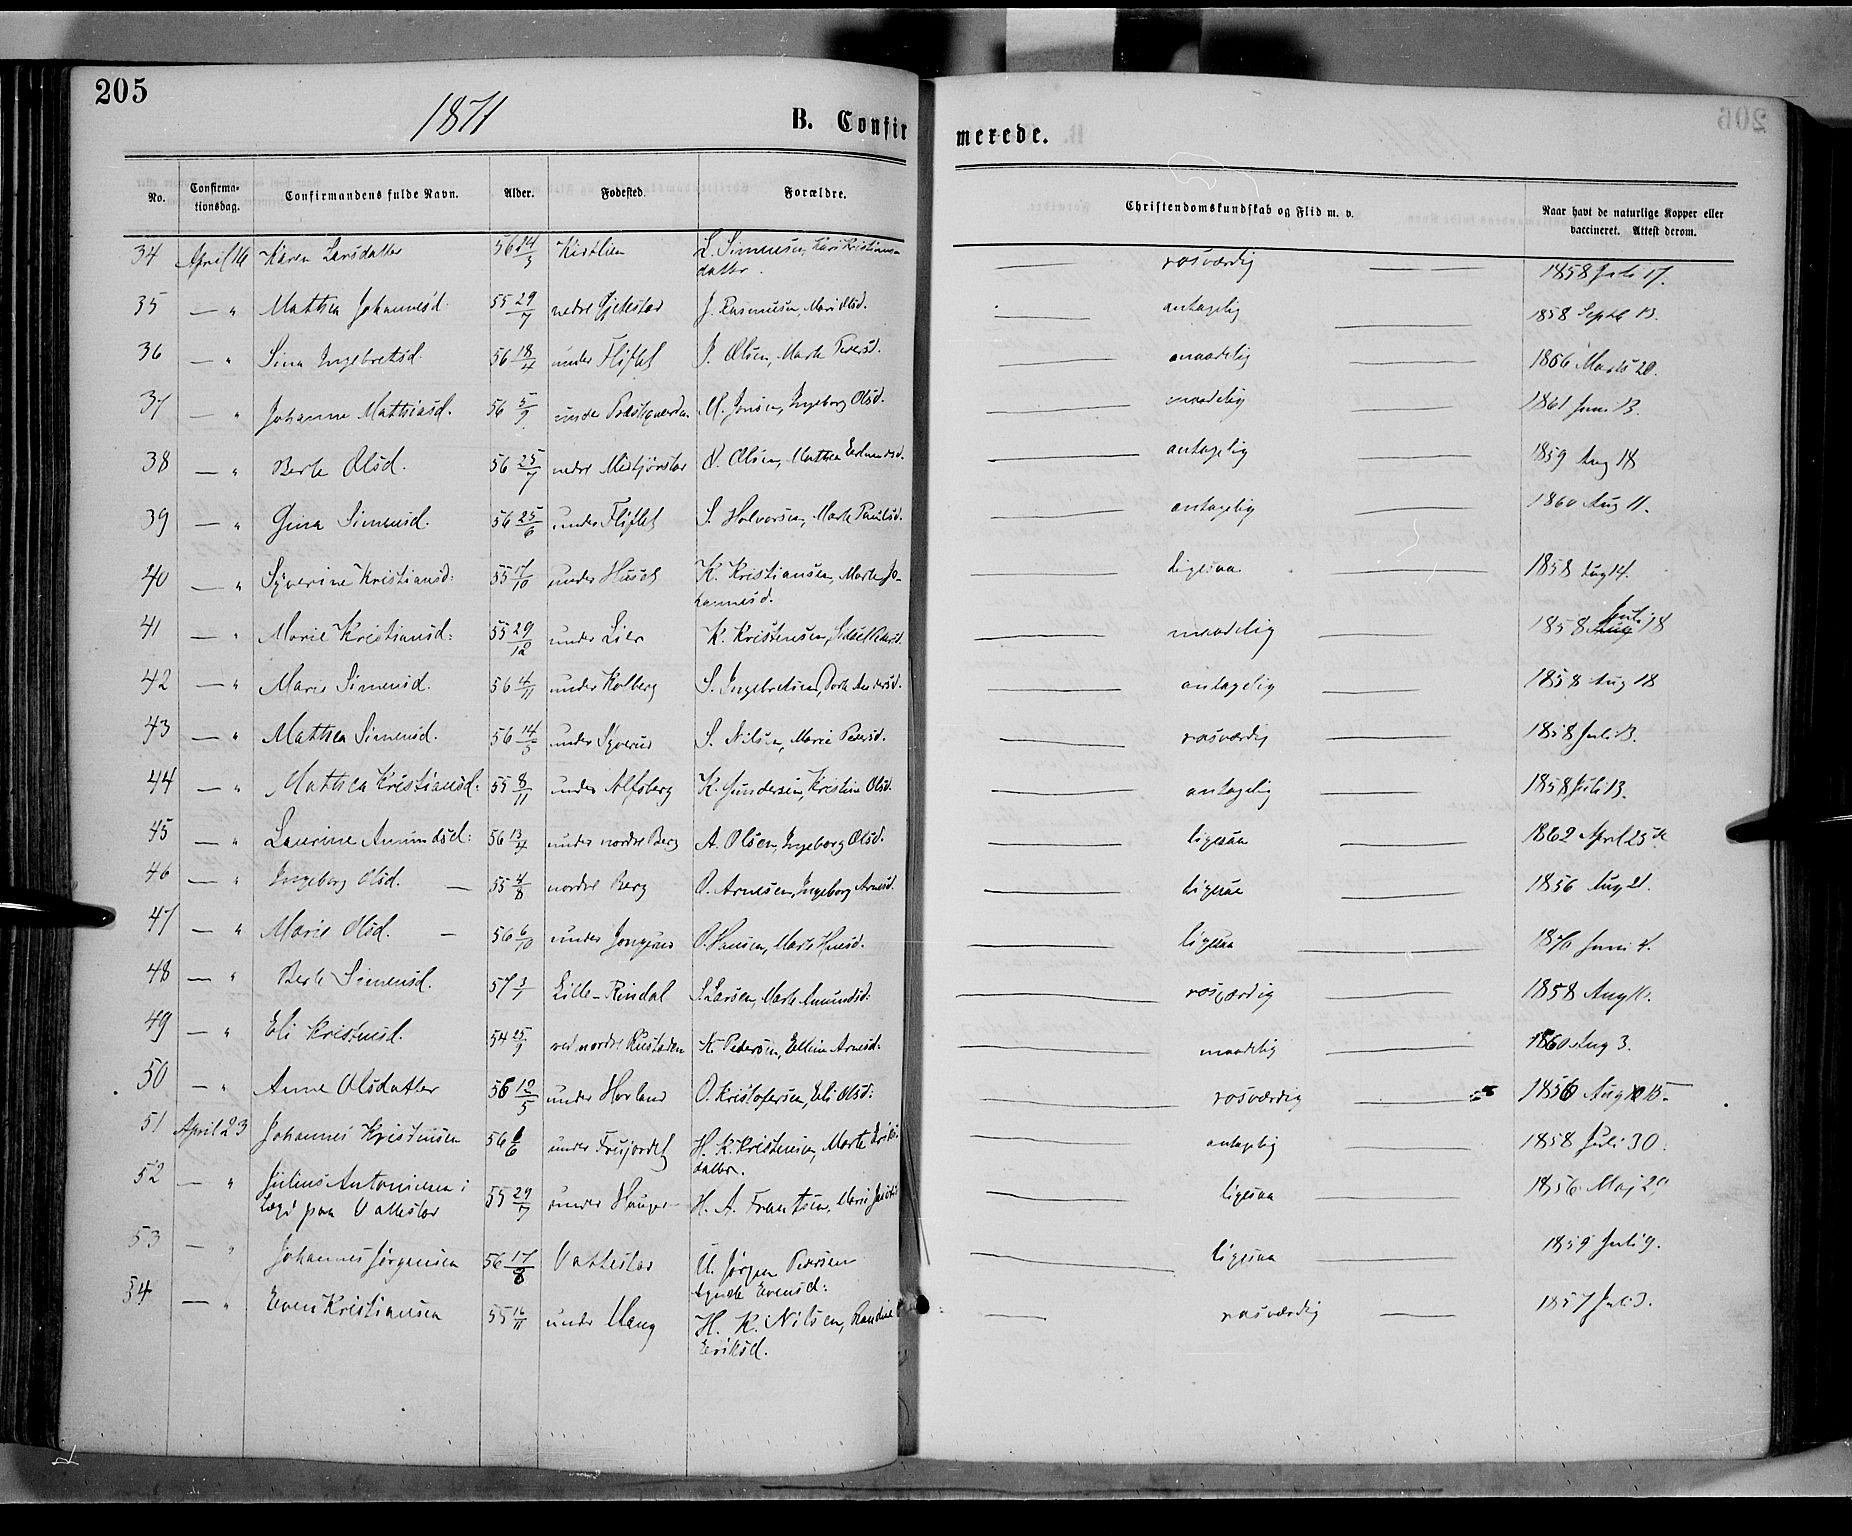 205
1871
B. Confirmerede.
No. Confirmationsdag. Confirmandens fulde Navn. Alder. Fødested. Forældre. Christendomskundskab og Flid m. v. Naar havt de naturlige Kopper eller vaccineret. Attest derom.
34 April 16 Karen Larsdatter 56 24/3 Kistlien L. Simensen, Kari Kristians- — rosværdig — 1858 Juli 17.
datter.
35 — " Mathea Johannesd. 55 29/7 nedre J. Rasmusen, Mari Olsd. — antagelig — 1858 Septb 13.
36 — " Sina Ingebretsd. 56 18/4 under Fliflet J. Olsen, Marte Pedersd. — maadelig — 1866 Marts 20.
37 — " Johanne Mathiasd. 56 5/9 under Præstegaarden M. Jonsen, Ingeborg Olsd. — maadelig — 1861 Juni 13.
38 — " Berte Olsd. 56 25/7 nedre O. Olsen, Mathea — antagelig — 1859 Aug 18
39 — " Gina Simensd. 56 25/6 under Fliflet S. Halvorsen, Marte Paulsd. — antagelig — 1860 Aug 11.
40 — " Syverine Kristiansd: 55 17/10 under Huset K. Kristiansen, Marte Jo- — ligesaa — 1858 Aug 14.
hannesd.
41 — " Marie Kristiansd: 55 29/12 under Lier K. Kristensen, — maadelig — 1858 Juli 18
42 — " Mari Simensd. 56 4/11 under Kolberg S. Ingebretsen, Dorte Andersd. — antagelig — 1858 Aug 18
43 — " Mathea Simensd. 56 14/5 under Syverud S. Nilsen, Marie Pedersd. — rosværdig — 1858 Juli 13.
44 — " Mathea Kristiansd: 55 8/11 under Alfsberg K. Gundersen, Kristine Olsd. — antagelig — 1858 Juli 13.
45 — " Laurine Amundsd: 56 13/4 under nordre Berg A. Olsen, Ingeborg Olsd. — ligesaa — 1862 April 25de
46 — " Ingeborg Olsd. — 55 4/8 nordre Berg O. Arnesen, Ingeborg Arnesd. — ligesaa — 1856 Aug 21.
47 — " Marie Olsd. — 56 6/10 under O. Hansen, Marte Hansd. — ligesaa — Juni 4.
48 — " Berte Simensd. 57 3/1 Lille-Rindal S. Larsen, Marte Amundsd: — rosværdig — 1858 Aug
49 — " Eli Kristensd. 54 25/9 ved nordre K. Pedersen, Elline Arnesd: — maadelig — 1860 Aug 3.
50 — " Anne Olsdatter 56 10/5 under Hovland O. Kristofersen, Eli Olsd: — rosværdig — 1856 Aug 15
51 April 23 Johannes Kristensen 56 6/6 under H. K. Kristensen, Marte Eriks- — antagelig — 1858 Juli 30.
datter.
52 — " Julius Antonisen i 55 29/7 under Haugen H. A. Frantsen, Marie — ligesaa — 1856 Maj 29
Lægd paa Vallestad
53 — " Johannes Jørgensen 56 17/8 Vattestad U. Jørgen Pedersen — ligesaa — 1859 Juli 9.
Agnete Evensd:
54 — " Even Kristiansen 55 16/11 under Haug H. K. Nilsen, Randine — rosværdig — 1857 Juli 3.
Eriksd.